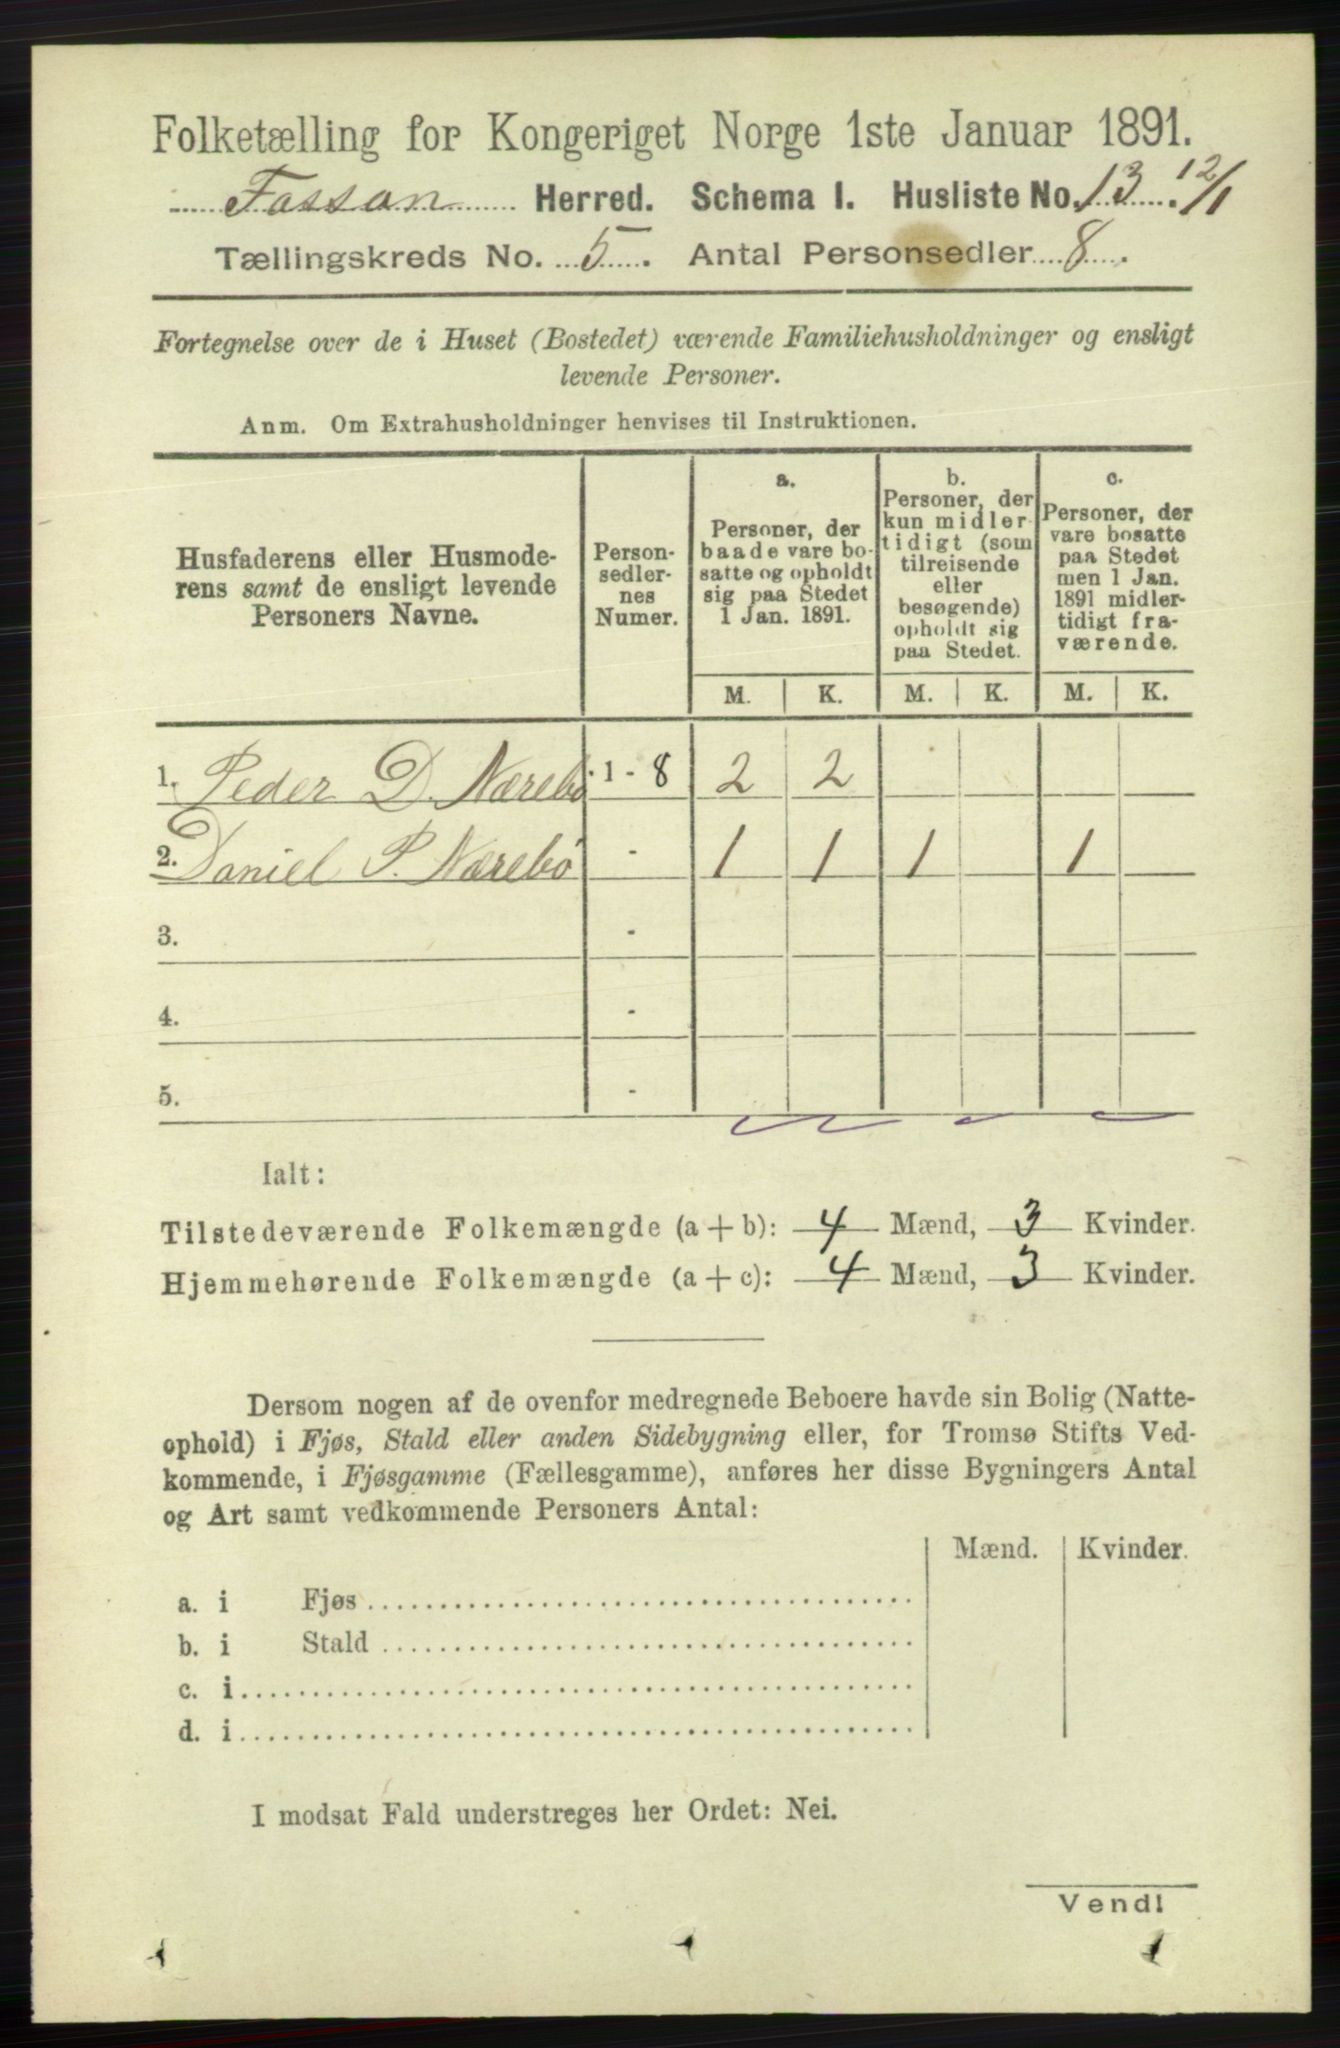 Folketælling for Kongeriget Norge 1ste Januar 1891.
Fossan Herred. Schema I. Husliste No. 13. 12/1
Tællingskreds No. 5. Antal Personsedler 8.
Fortegnelse over de i Huset (Bostedet) værende Familiehusholdninger og ensligt
levende Personer.
Anm. Om Extrahusholdninger henvises til Instruktionen.
Husfaderens eller Husmode-
rens samt de ensligt levende
Personers Navne.
Person-
sedler-
nes
Numer.
a.
Personer, der
baade vare bo-
satte og opholdt
sig paa Stedet
1 Jan. 1891.
b.
Personer, der
kun midler-
tidigt (som
tilreisende
eller
besøgende)
opholdt sig
paa Stedet.
c.
Personer, der
vare bosatte
paa Stedet
men 1 Jan.
1891 midler-
tidigt fra-
værende.
M. K. M. K. M. K.
1. Peder D. Nærebø 1 - 8 2 2
2. Daniel P. Nærebö - 1 1 1 1
3. -
4. -
5. -
Ialt:
Tilstedeværende Folkemængde (a + b): 4 Mænd, 3 Kvinder.
Hjemmehørende Folkemængde (a + c): 4 Mænd, 3 Kvinder.
Dersom nogen af de ovenfor medregnede Beboere havde sin Bolig (Natte-
ophold) i Fjøs, Stald eller anden Sidebygning eller, for Tromsø Stifts Ved-
kommende, i Fjøsgamme (Fællesgamme), anføres her disse Bygningers Antal
og Art samt vedkommende Personers Antal:
Mænd. Kvinder.
a. i Fjøs
b. i Stald
c. i
d. i
I modsat Fald understreges her Ordet: Nei.
Vend!